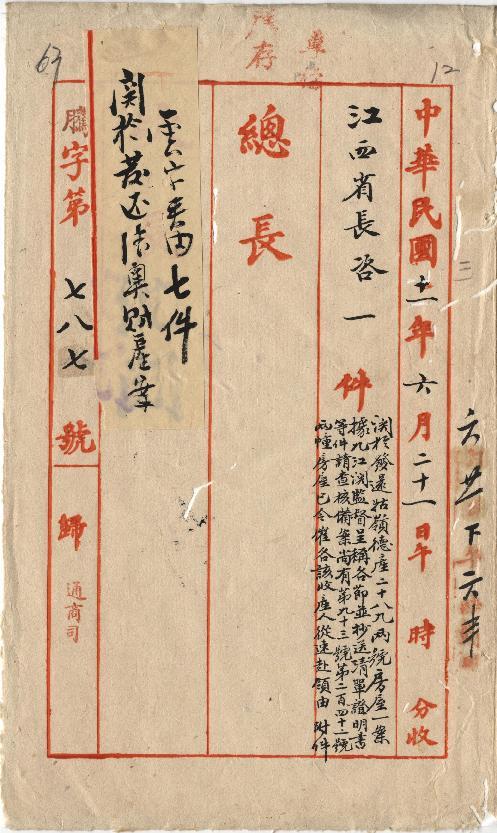 六 廿一 下 六 半
中華民國十一年六月二十一日午 時 分收
三
12
江西省長咨一件
関於發還牯嶺德產二十八九兩號房產一案
據九江関監督呈稱各節並抄送清單證明書
等件請查核備案尚有第九十三號第二百四十二號
兩種房產已令催各該收產人從速赴領由 附件
總長
存
七件
関於發还德奧財產案
字第七八七號
歸 通商司